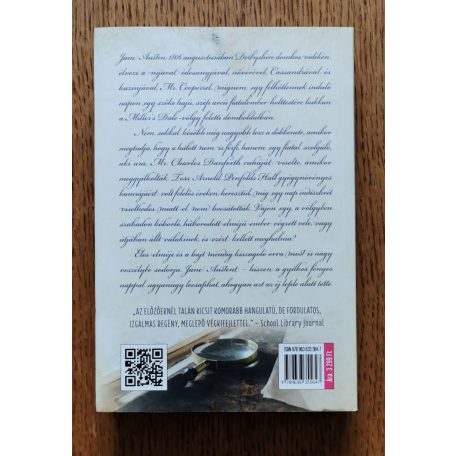 Jane Austen 1806 augusztusában Derbyshire dombos vidékén
élvezi a nyarat édesanyjával, nővérével, Cassandrával és
kuzinjával, Mr. Cooperrel, mígnem egy felhőtlennek induló
napon egy szőke hajú, szép arcú fiatalember holttestére bukkan
a Miller's Dale-völgy feletti domboldalban.
Nem sokkal később még nagyobb lesz a döbbenete, amikor
megtudja, hogy a halott nem is férfi, hanem egy fiatal szolgáló,
aki ura, Mr. Charles Danforth ruháját viselte, amikor
meggyilkolták. Tess Arnold Penfolds Hall gyógynövényes
kamrájáért volt felelős éveken keresztül, míg egy nap
viselkedés miatt el nem bocsátották. Vajon egy a völgyben
szabadon kóborló, háborodott elméjű ember végzett vele, vagy
útjában állt valakinek, és ezért kellett meghalnia?
Éles elméje és a bajt mindig kiszagoló orra most is nagy
veszélybe sodorja Jane Austent – hiszen a gyilkos fényes
nappal ugyanúgy lecsaphat, ahogyan azt az éj leple alatt tette.
„AZ ELŐZŐEKNÉL TALÁN KICSIT KOMORABB HANGULATÚ, DE FORDULATOS,
IZGALMAS REGÉNY, MEGLEPŐ VÉGKIFEJLETTEL." – School Library Journal
Ára: 3 299 Ft